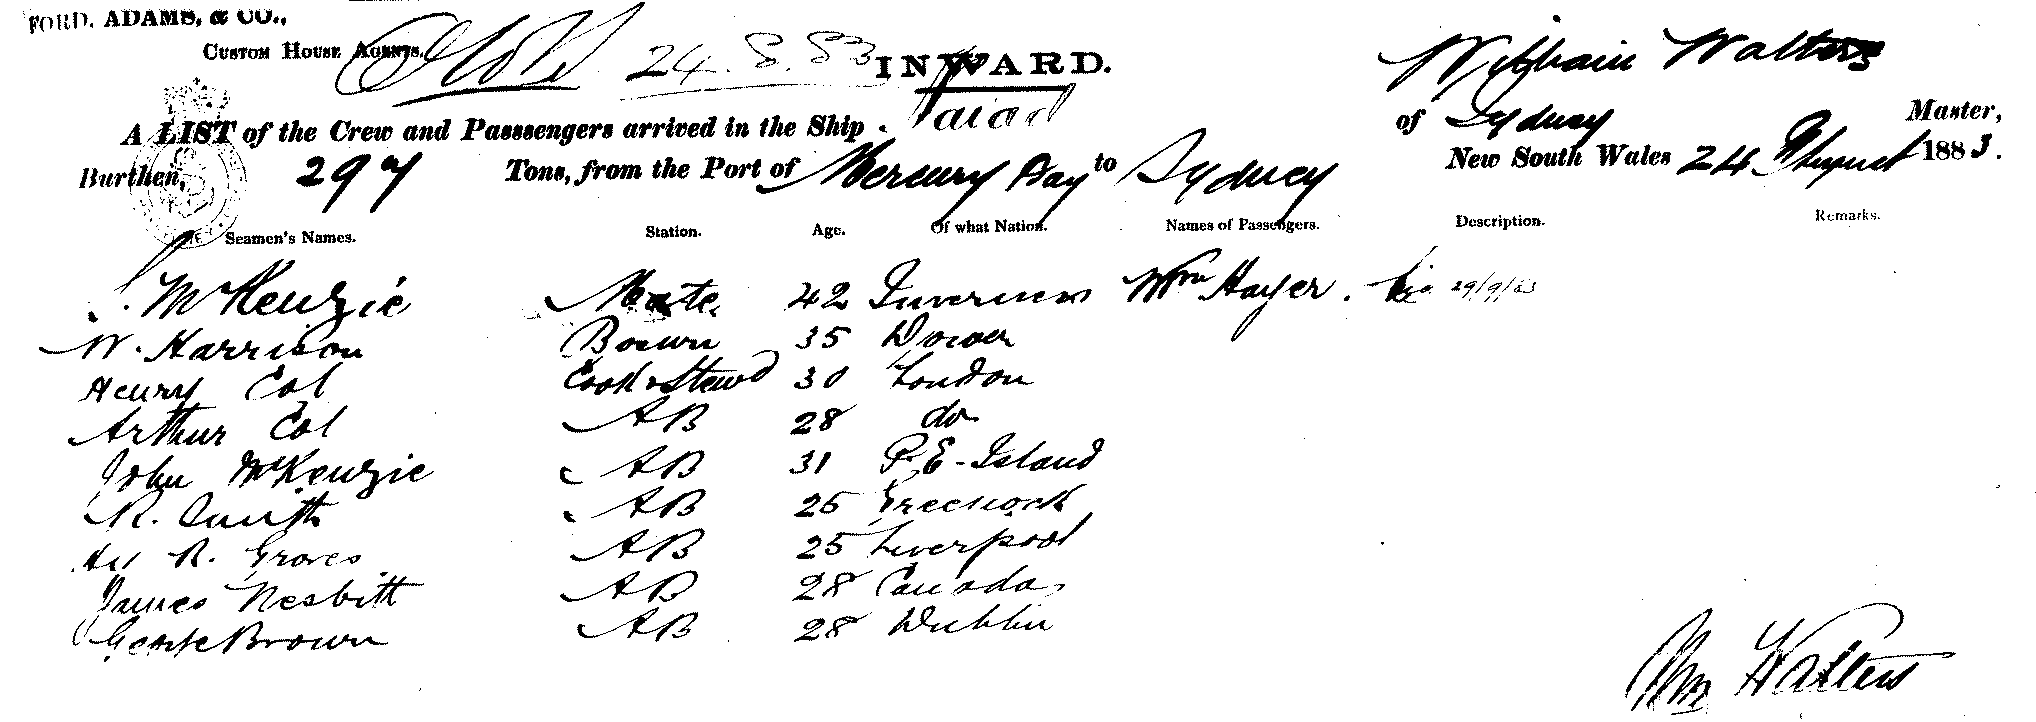 FORD, ADAMS, & CO.,
CUSTOM HOUSE AGENTS.
24.8.83 INWARD. William Walters
A LIST of the Crew and Passsengers arrived in the Ship Naiad of Sydney Master,
Burthen, 297 Tons, from the Port of Mercury Bay to Sydney New South Wales 24 August 1883.
Seamen's Names. Station. Age. Of what Nation. Names of Passengers. Description. Remarks.
McKenzie Mate 42 Inverness Wm Hayer. 29/9/83
W. Harrison Bosun 35 Dover
Henry Col Cook & Stewd 30 London
Arthur Col AB 28 do
John McKenzie AB 31 P.E. Island
R. Smith AB 25 Greenock
R. Groves AB 25 Liverpool
James Nesbitt AB 28 Canada
George Brown AB 28 Dublin
Wm Walters